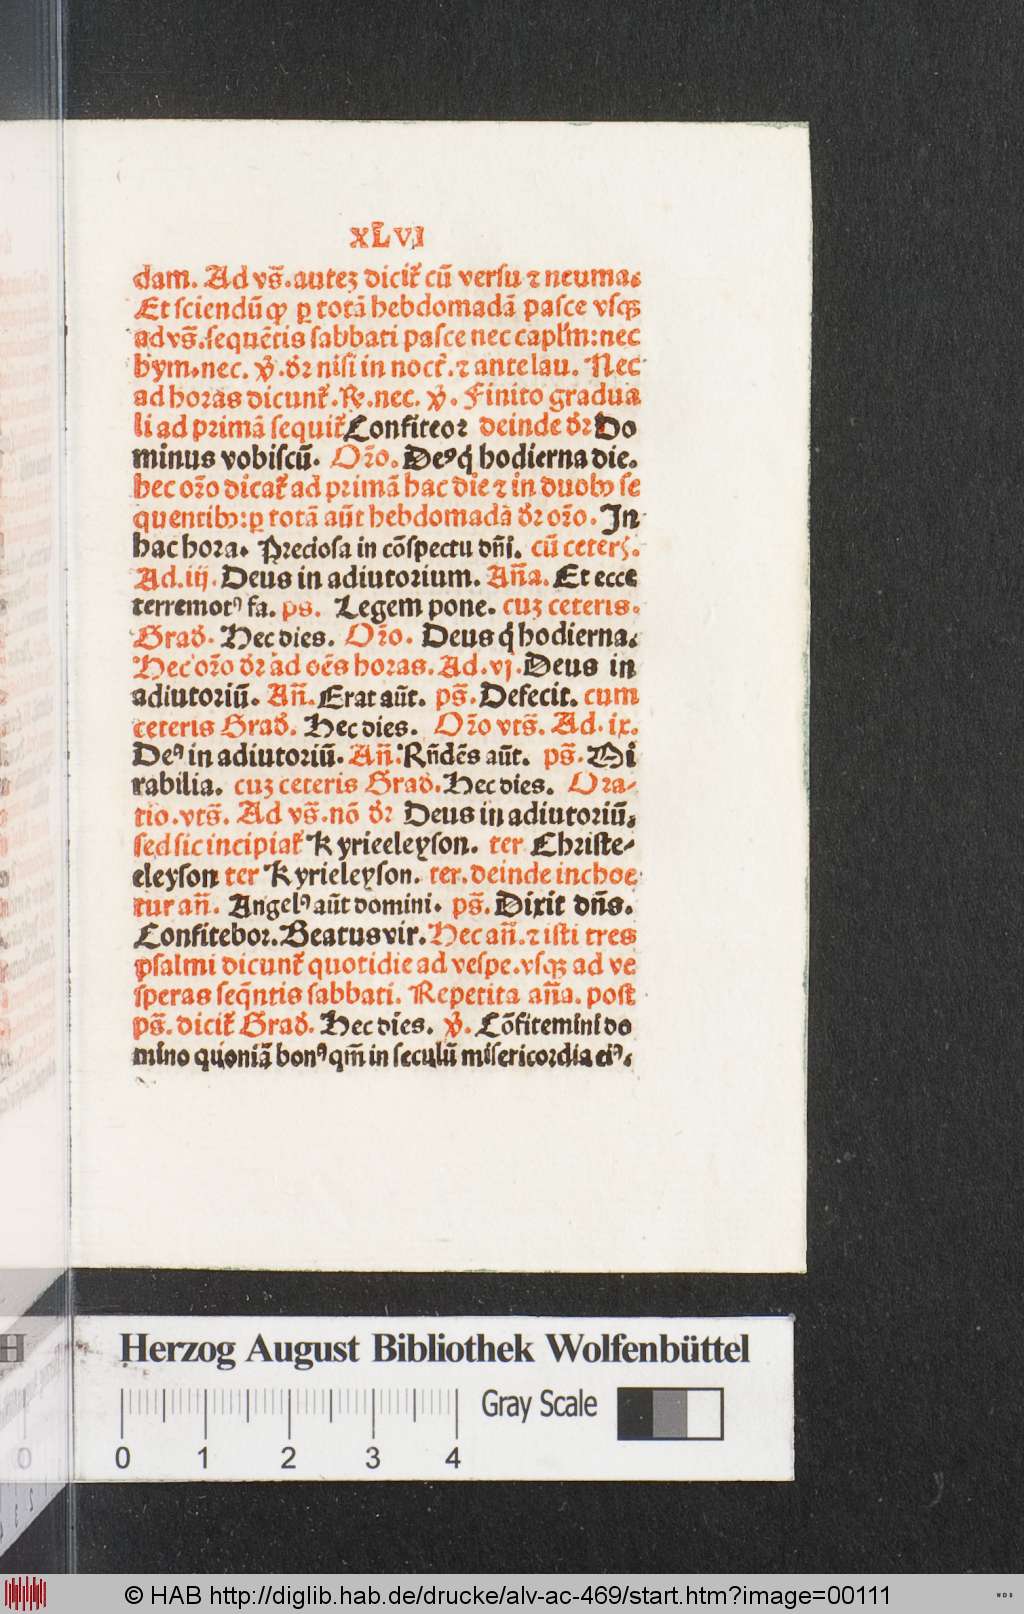 XLVI
dam. Ad vs̄. autez dicit̄ cū versu ⁊ neuma.
Et sciendū ꝙ ꝑ totā hebdomadā pasce vsqꝫ
ad vs̄. sequētis sabbati pasce nec capl'm: nec
hym. nec. ꝟ. dꝛ nisi in noct̄. ⁊ ante lau. Nec
ad horas dicunt̄. ℟. nec. ꝟ. Finito gradua
li ad primā sequit̄ Confiteor deinde dꝛ Do
minus vobiscū. Oꝛo. Deꝰ q̄ hodierna die.
hec oꝛo dicat̄ ad primā hac die ⁊ in duobꝫ se
quentibꝫ: ꝑ totā aūt hebdomadā dꝛ oꝛo. In
hac hora. Preciosa in cōspectu dn̄i. cū ceteꝝ.
Ad. iij. Deus in adiutorium. An̄a. Et ecce
terremotꝰ fa. ps. Legem pone. cuz ceteris.
Grad. Hec dies. Oꝛo. Deus q̄ hodierna.
Hec oꝛo dꝛ ad oēs horas. Ad. vj. Deus in
adiutoriū. An̄. Erat aūt. ps̄. Defecit. cum
ceteris Grad. Hec dies. Oꝛo vts̄. Ad. ix.
Deꝰ in adiutoriū. An̄. Rn̄dēs aūt. ps̄. Mi
rabilia. cuz ceteris Grad. Hec dies. Ora-
tio. vts̄. Ad vs̄. nō dꝛ Deus in adiutoriū,
sed sic incipiat̄ Kyrieeleyson. ter Christe-
eleyson ter Kyrieleyson. ter. deinde inchoe
tur an̄. Angelꝰ aūt domini. ps̄. Dixit dn̄s.
Confitebor. Beatus vir. Hec an̄. ⁊ isti tres
psalmi dicunt̄ quotidie ad vespe. vsqꝫ ad ve
speras seq̄ntis sabbati. Repetita an̄a. post
ps̄. dicit̄ Grad. Hec dies. ꝟ. Cōfitemini do
mino quoniā bonꝰ qm̄ in seculū misericordia eiꝰ.
Herzog August Bibliothek Wolfenbüttel
Gray Scale
0 1 2 3 4
© HAB http://diglib.hab.de/drucke/alv-ac-469/start.htm?image=00111